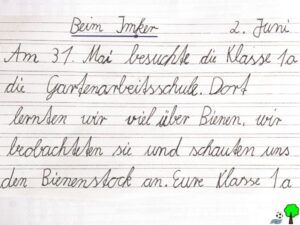 Beim Imker 2. Juni
Am 31. Mai besuchte die Klasse 1a
die Gartenarbeitsschule. Dort
lernten wir viel über Bienen, wir
beobachteten sie und schauten uns
den Bienenstock an. Eure Klasse 1a